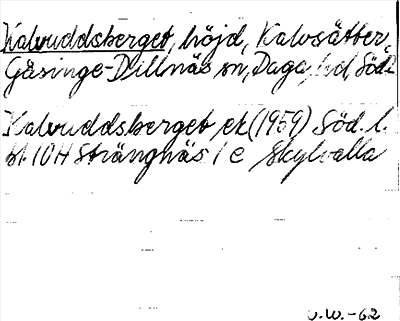 Kalvuddsberget, höjd, Kalvsätter,
Gåsinge-Dillnäs sn, Daga hd Söd.
Kalvuddsberget ek (1959) Söd. l.
bl. 10H Strängnäs 1 e Skylvalla
U.W.-62